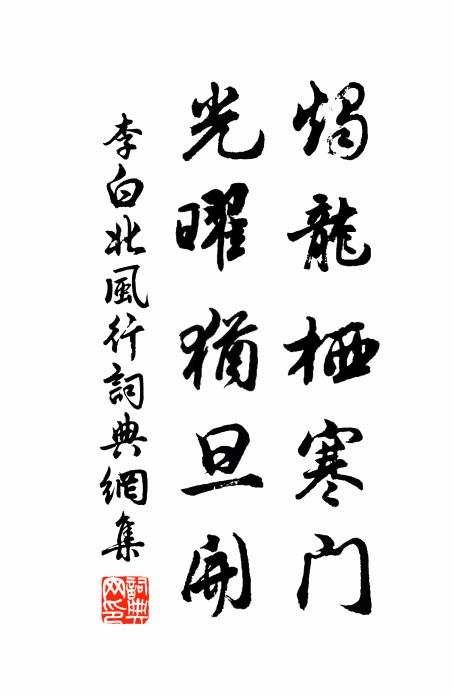 燭龍栖寒门
光曜猶旦開
李白北風行詞典網集
詞典网印